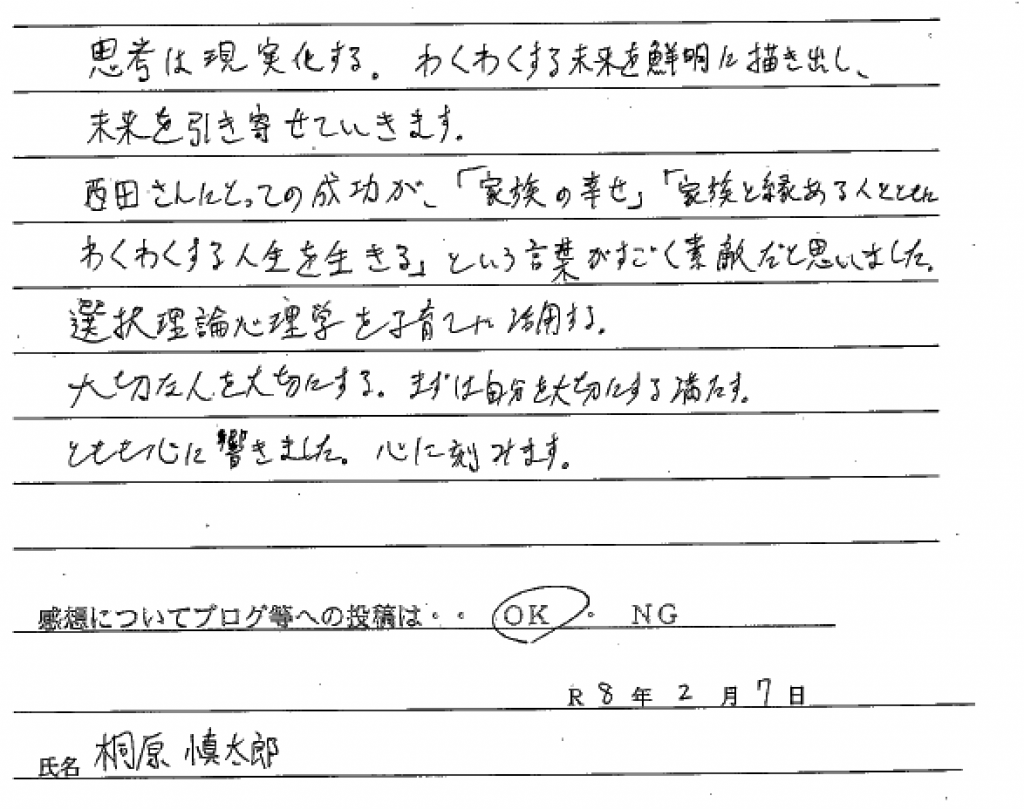 思考は現実化する。わくわくする未来を鮮明に描き出し、
未来を引き寄せていきます。
西田さんにとっての成功が、「家族の幸せ」「家族と縁ある人とともに
わくわくする人生を生きる」という言葉がすごく素敵だと思いました。
選択理論心理学を子育てに活用する。
大切な人を大切にする。まずは自分を大切にする満たす。
とても心に響きました。心に刻みます。
感想についてブログ等への投稿は・・ OK ・ NG
R 8 年 2 月 7 日
氏名 桐原 慎太郎